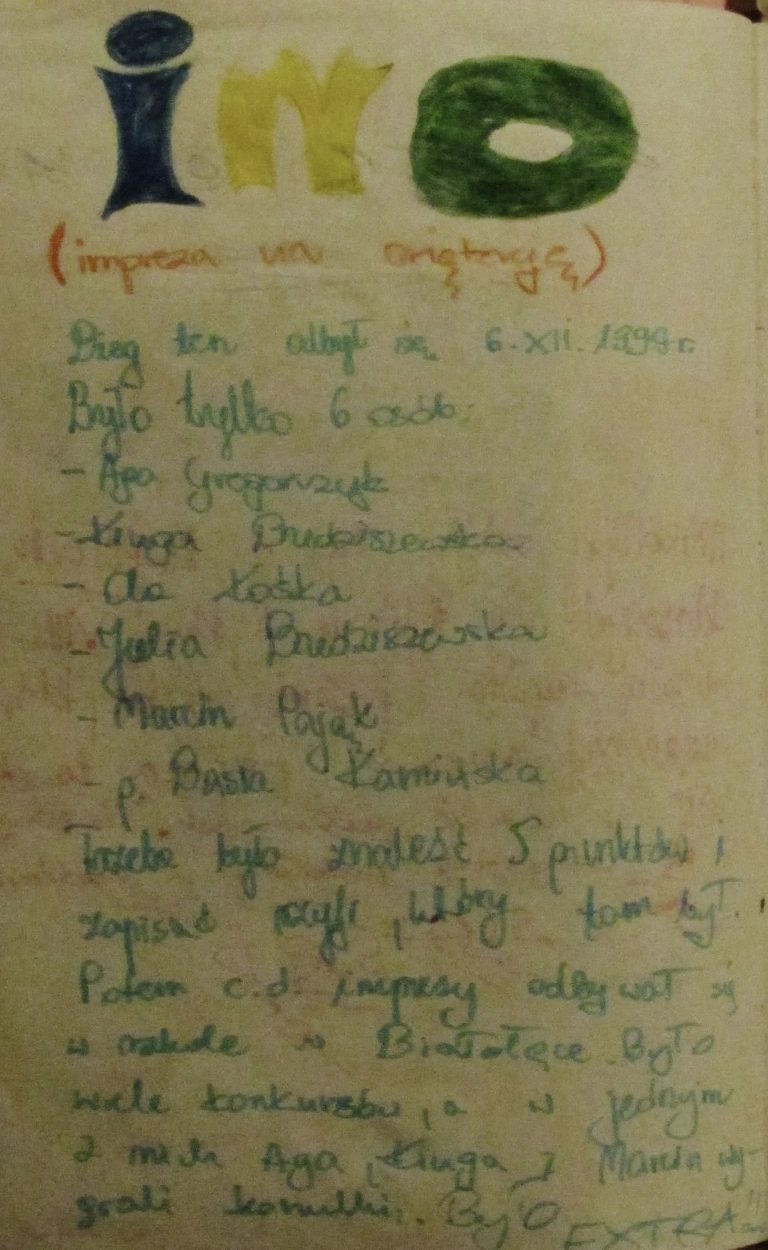 ino
(impreza na orięterację)
Bieg ten odbył się 6.XII.1998r.
Było tylko 6 osób:
- Aga Gregorczyk
- Kinga Brudziszewska
- Ola Łośka
- Julia Brudziszewska
- Marcin Pająk
- p. Basia Kamińska
Trzeba było znaleść 5 punktów i
zapisać szyfr, który tam był.
Potem c.d. imprezy odbywał się
w szkole w Białołęce. Było
wiele konkursów, a w jednym
z nich Aga, Kinga i Marcin wy-
grali koszulki. Było EXTRA!!!